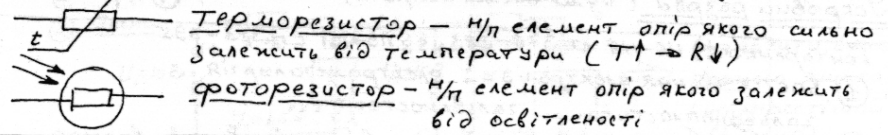 терморезистор – н/п елемент опір якого сильно
t
залежить від температури ( T↑ → R↓ )
фоторезистор – н/п елемент опір якого залежить
від освітленості